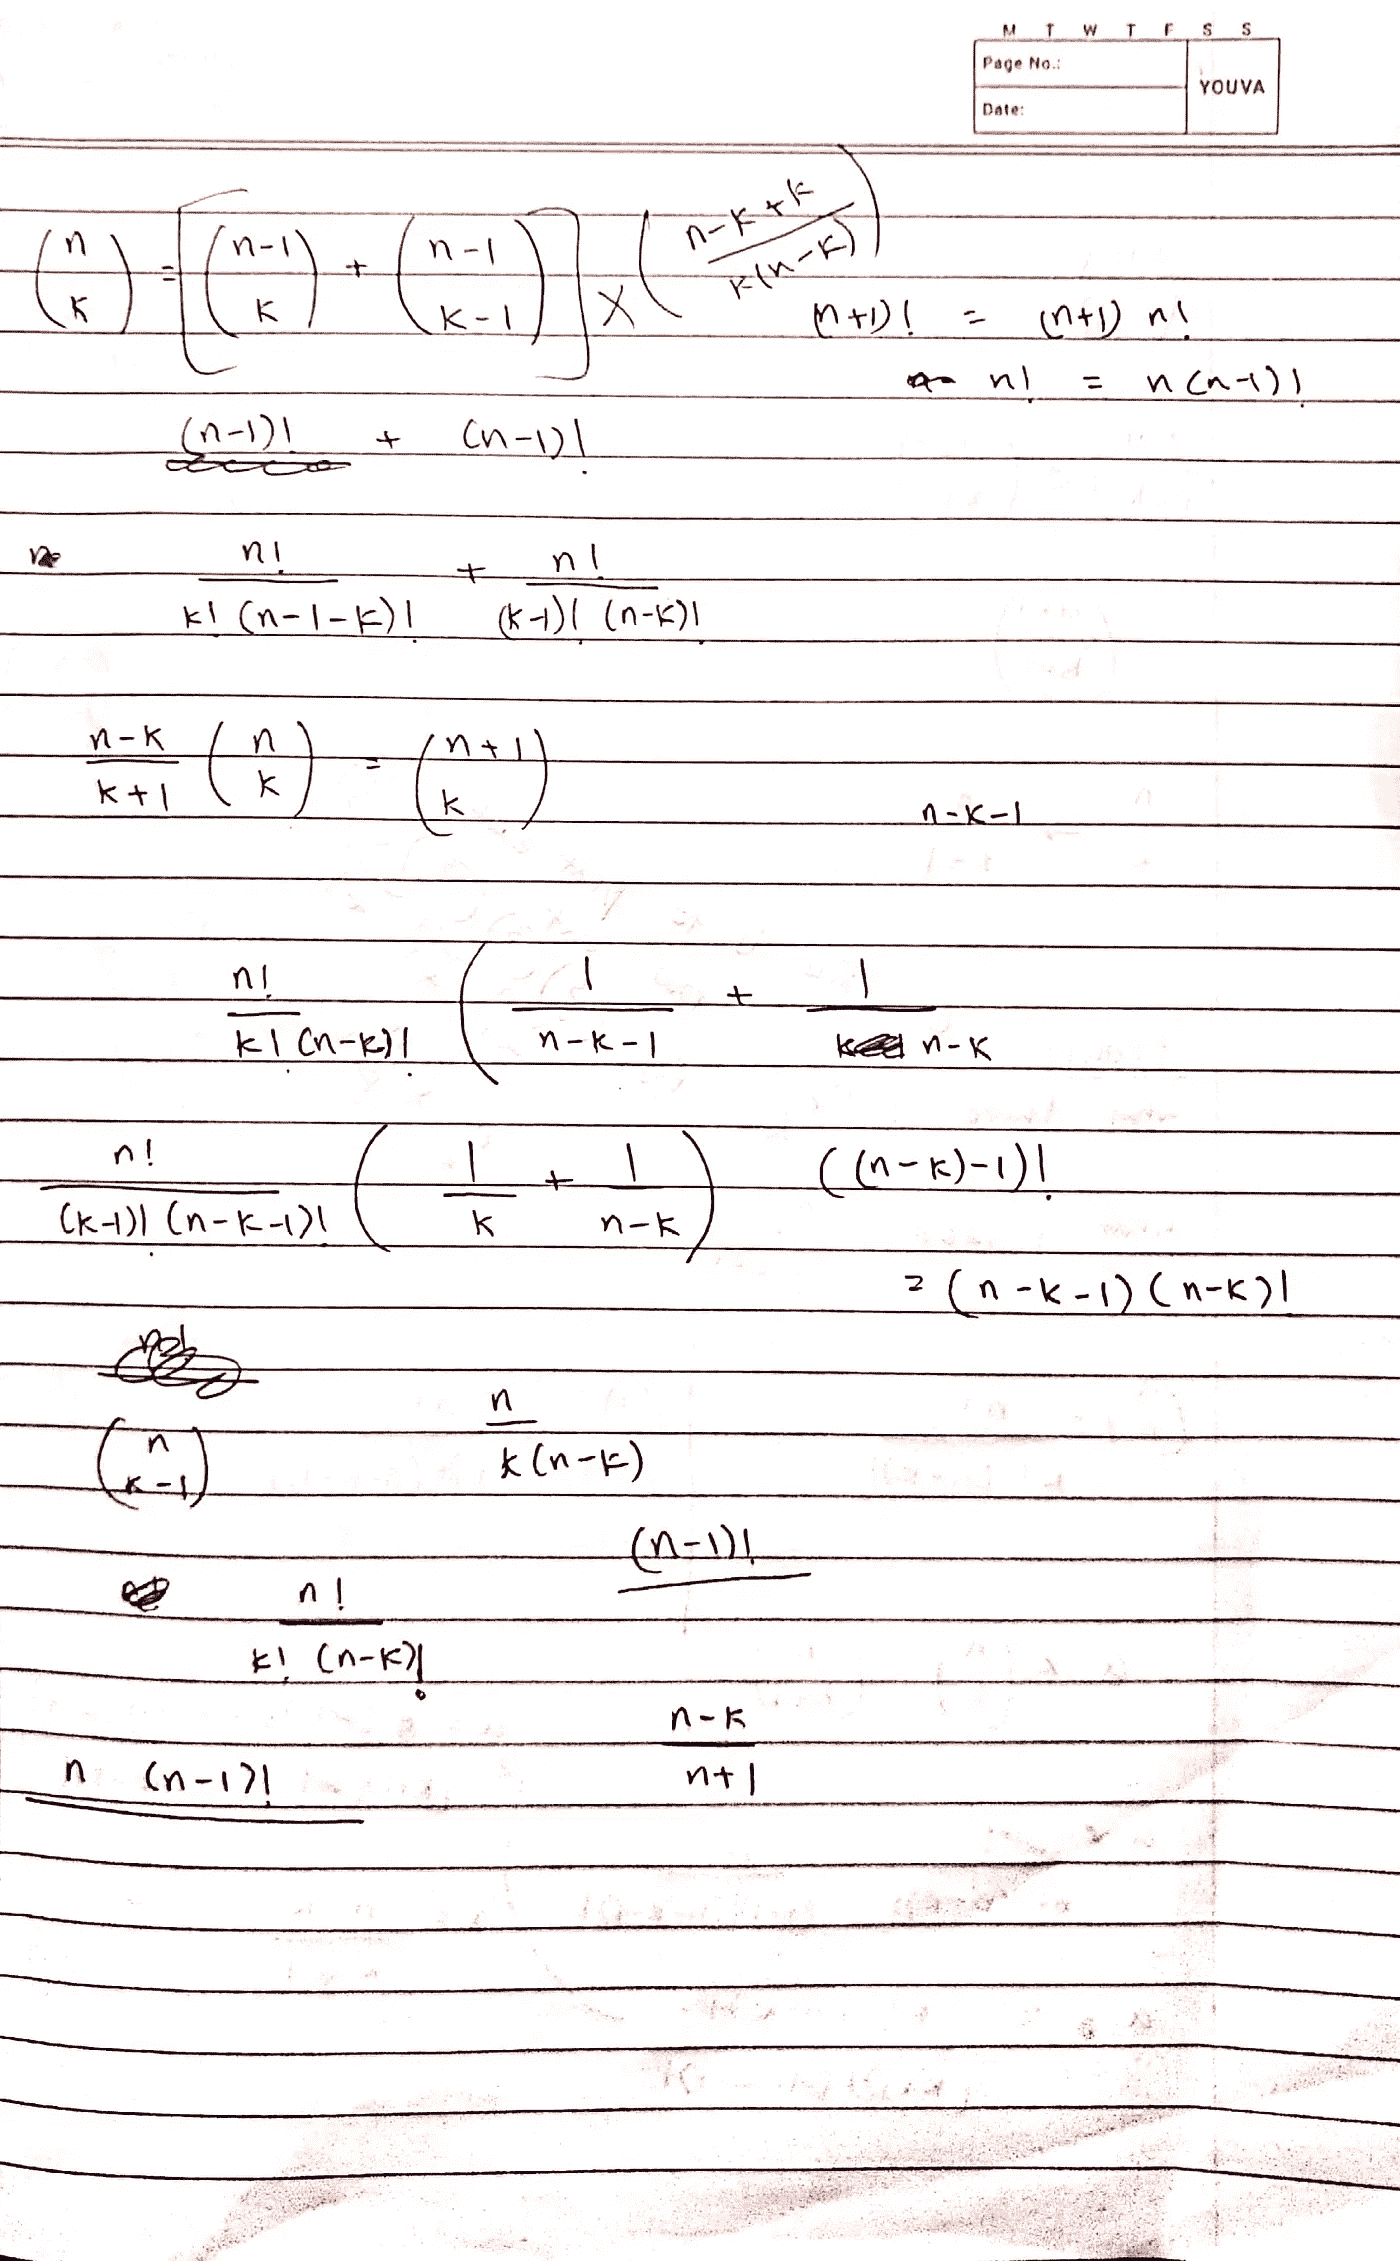 M T W T F S S
Page No.:
YOUVA
Date:
(n k) = [(n-1 k) + (n-1 k-1)] × (n-k+k / k(n-k))
(n+1)! = (n+1) n!
n! = n(n-1)!
(n-1)! + (n-1)!
n!/(k! (n-1-k)!) + n!/((k-1)! (n-k)!)
n-k/k+1 (n k) = (n+1 k)
n-k-1
n!/(k! (n-k)!) ( 1/(n-k-1) + 1/(n-k)
n!/((k-1)! (n-k-1)!) ( 1/k + 1/(n-k) ) ((n-k)-1)!
= (n-k-1) (n-k)!
(n k-1) n/(k(n-k))
(n-1)!
n!/(k! (n-k)!)
n-k/n+1
n (n-1)!